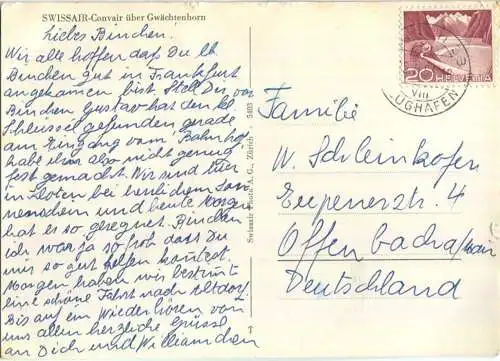 SWISSAIR-Convair über Gwächtenhorn
Liebes Binchen.
Wir alle hoffen daß Du lb
Binchen gut in Frankfurt
angekommen bist. Stell Dir vor
Binchen Gustav hat den kl
Schlüssel gefunden gerade
am Eingang vom Bahnhof
habe ihm also nicht genug
fest gemacht. Wir sind hier
in Kloten bei herrlichem Son
nenschein und heute Morgen
hat es so geregnet. Binchen
ich war ja so froh dass Du
mir so gut helfen konntest.
Morgen haben wir bestimmt
eine schöne Fahrt nach Altdorf.
Bis auf ein Wiederhören von
uns allen herzliche Grüsse
an Dich und Williamchen
Swissair Photo A. G., Zürich 5403
20 HELVETIA
VIII
FLUGHAFEN
Familie
W. Schleinkofer
Eupenerstr. 4
Offenbach a/main
Deutschland